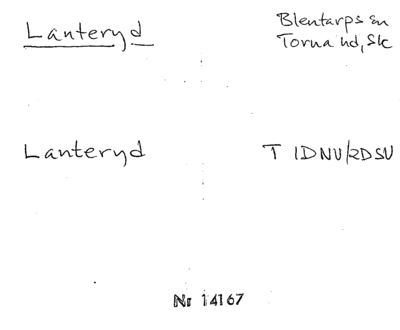 Lanteryd
Blentarps sn
Torna hd, Sk
Lanteryd
T 1DNV/2DSV
Nr 14167